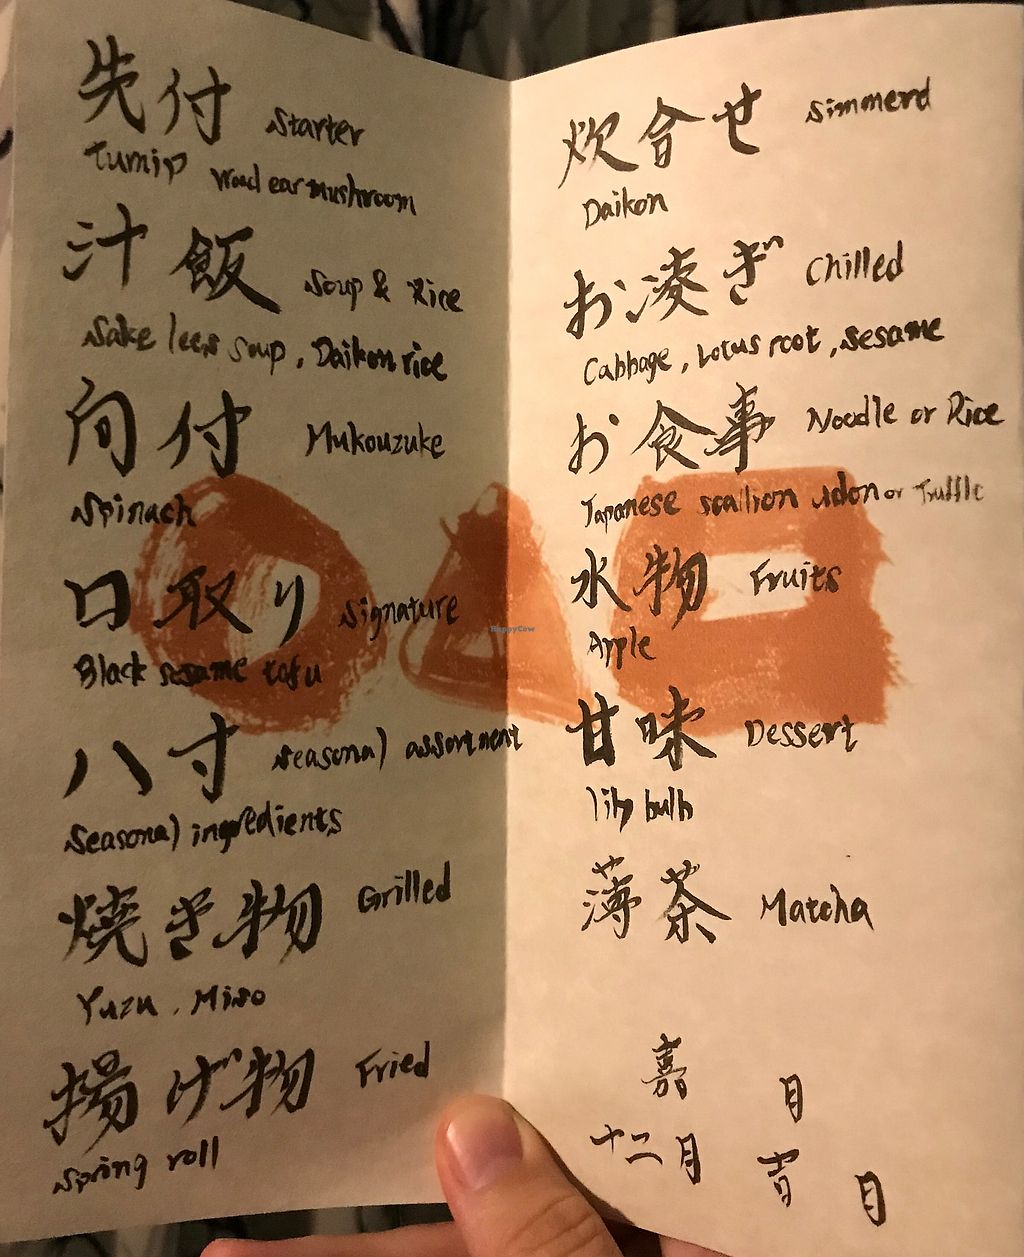 先付 Starter
Turnip Wood ear mushroom
汁飯 Soup & Rice
Sake lees soup, Daikon rice
向付 Mukouzuke
Spinach
口取り Signature
Black sesame tofu
八寸 Seasonal assortment
Seasonal ingredients
焼き物 Grilled
Yuzu, Miso
揚げ物 Fried
Spring roll
炊合せ Simmerd
Daikon
お凌ぎ Chilled
Cabbage, Lotus root, Sesame
お食事 Noodle or Rice
Japanese scallion udon or Truffle
水物 Fruits
Apple
甘味 Dessert
lily bulb
薄茶 Matcha
嘉月
十二月吉日
HappyCow